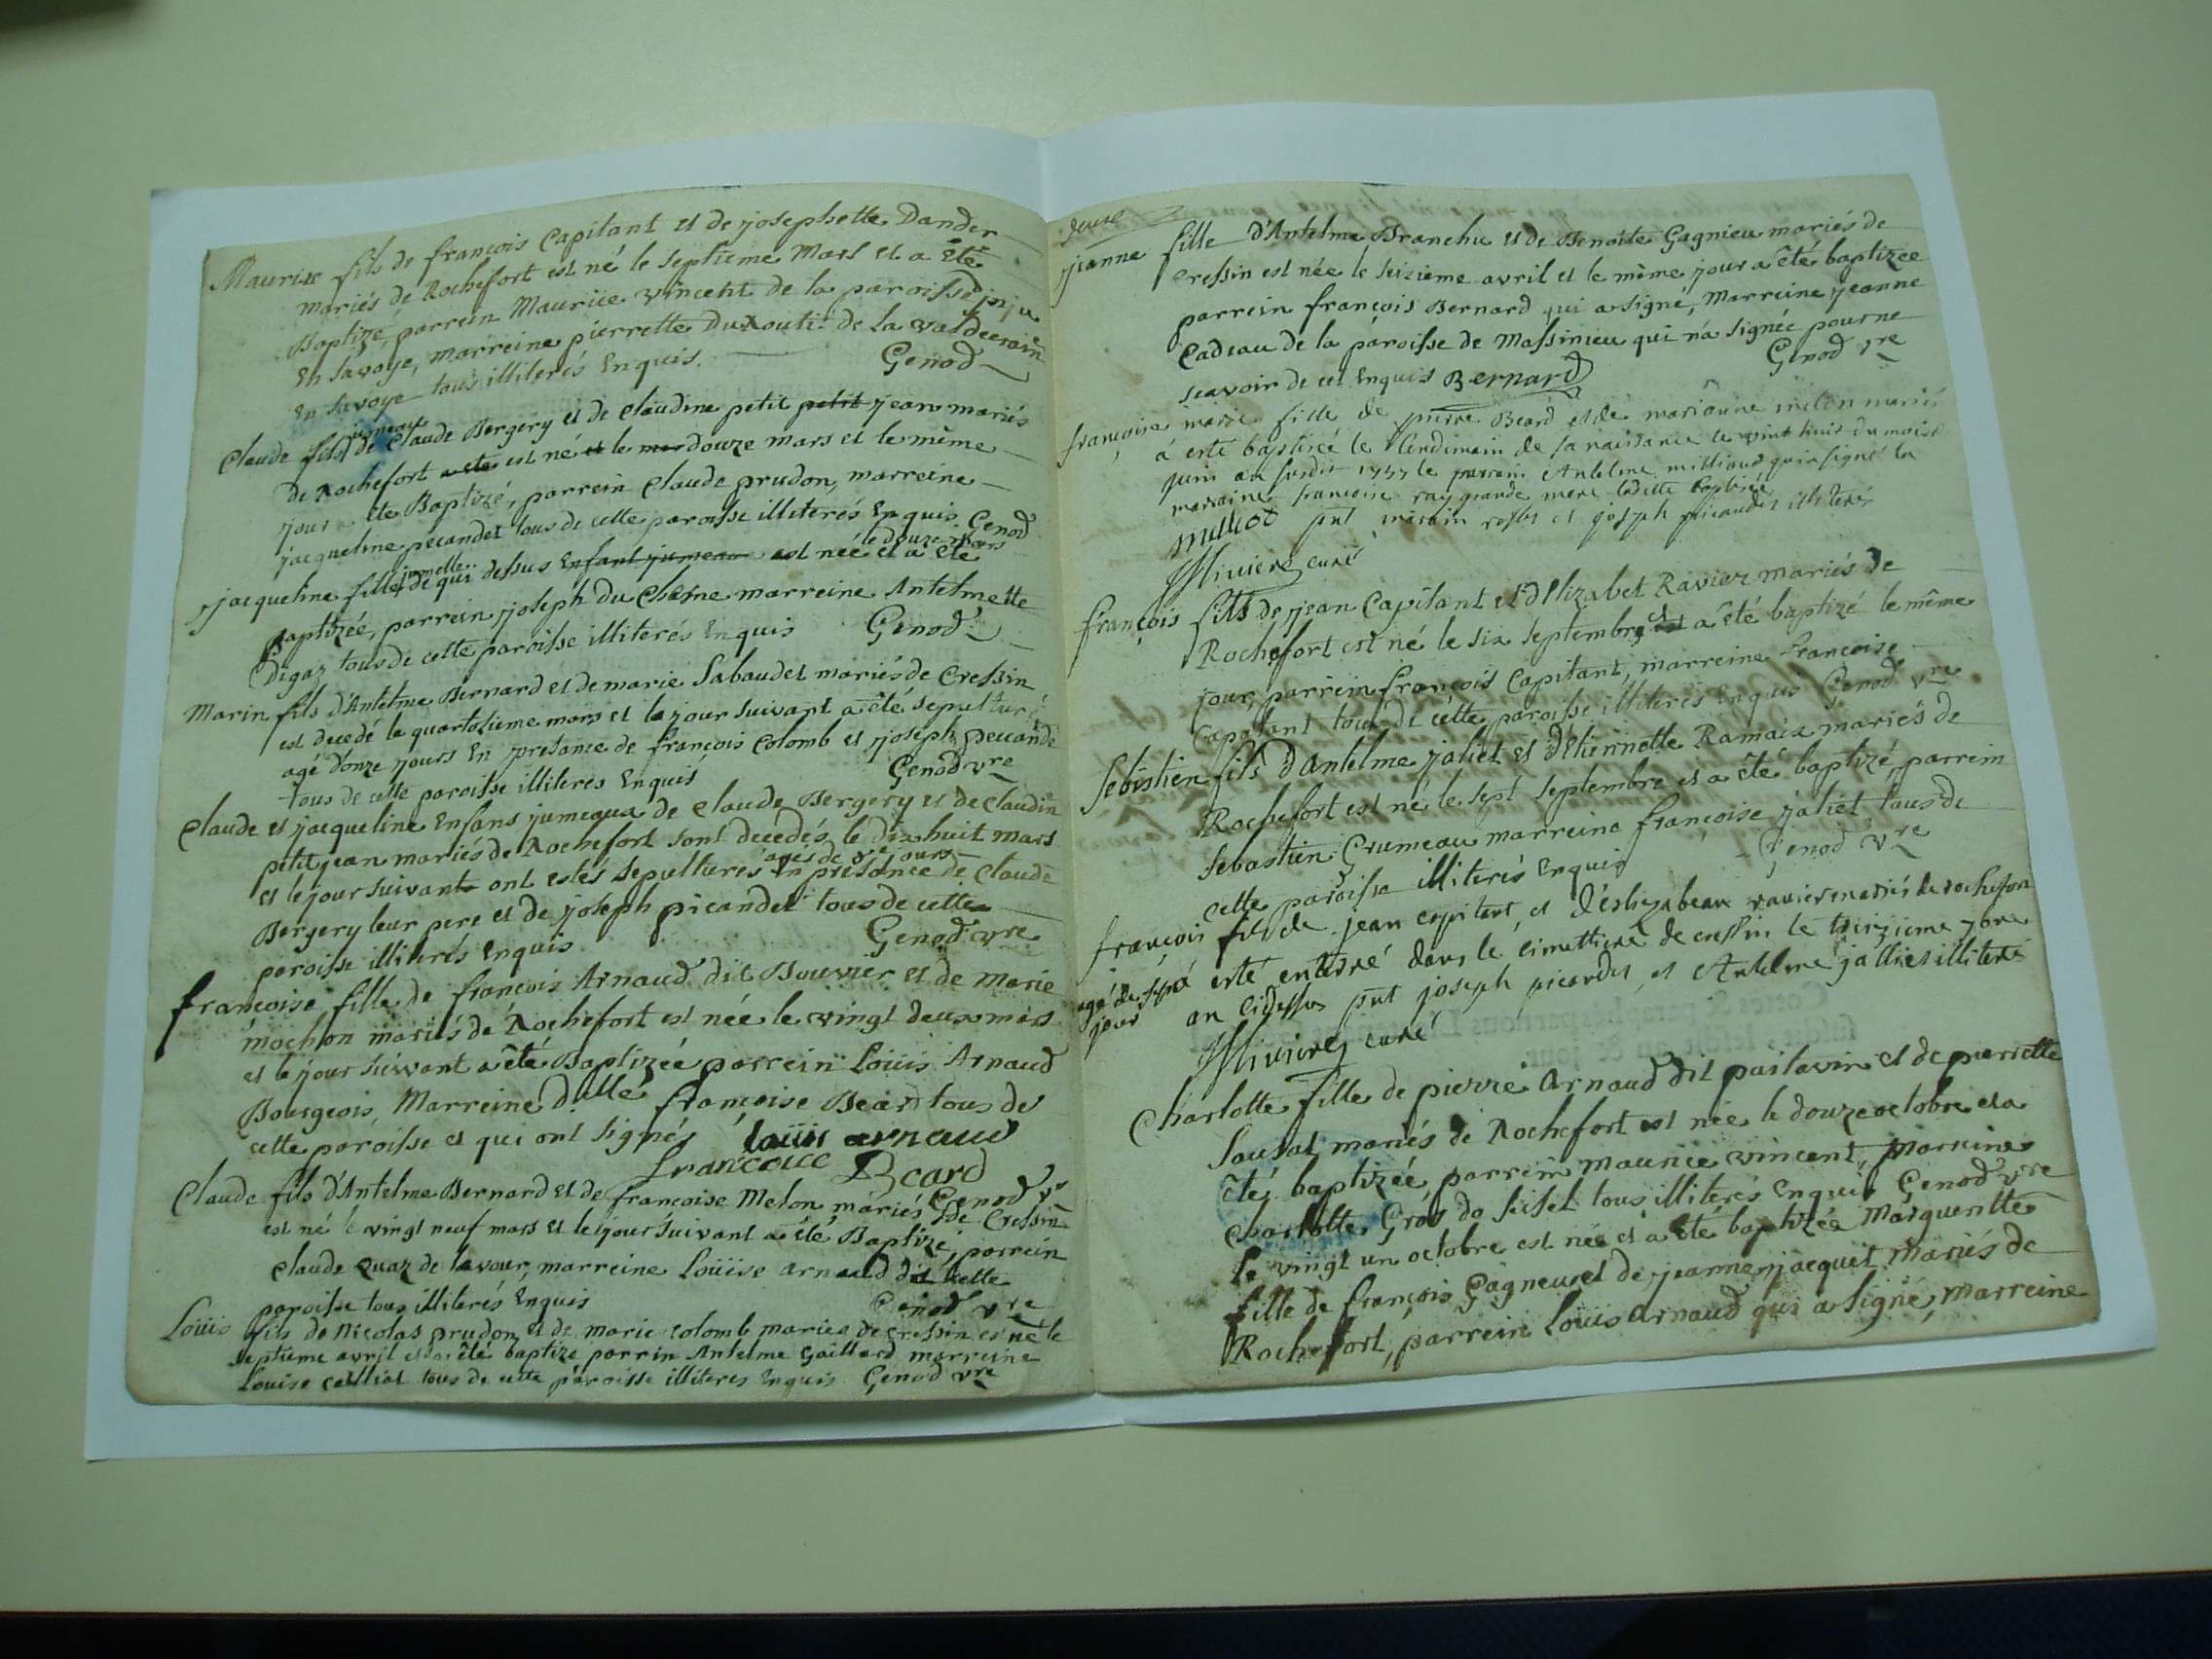 Maurise fils de françois Capitant et de josephette Dander
mariés de Rochefort est né le septieme Mars et a été
Baptizé, parrein Maurice vincent de la paroisse
En Savoye, marreine pierrette de la
En Savoye tous illiterés Enquis. Genod
Claude fils jumeau de Claude Bergery et de Claudine petit petit jean mariés
de Rochefort a ete est né et le mar douze mars et le même
jour a été Baptizé, parrein Claude prudon, marreine
jacqueline picandet tous de cette paroisse illiterés Enquis. Genod
jacqueline fille jumelle de qui dessus Enfant jumeau est née le douze mars et a été
Baptizée, parrein joseph du Chesne marreine Antelmette
Digaz tous de cette paroisse illiterés Enquis Genod
Marin fils d'Antelme Bernard et de marie Sabaudet mariés de Cressin
est decedé le quartozieme mars et le jour suivant a été sepulturé
agé donze jours En presance de françois Colomb et joseph peccande
tous de cette paroisse illiteres Enquis Genod vre
Claude et jacqueline Enfans jumeaux de Claude Bergery et de Claudin
petit jean mariés de Rochefort sont decedés le dix huit mars
et le jour suivant ont estés sepulturés agés de jours En présence de Claude
Bergery leur pere et de joseph picandet tous de cette
paroisse illiterés Enquis Genod vre
françoise fille de françois Arnaud dit Bouvier et de Marie
mochon mariés de Rochefort est née le vingt deux mars
et le jour suivant a été Baptizée parrein Loüis Arnaud
Bourgeois, Marreine Dlle françoise Beard tous de
cette paroisse et qui ont signés loüis arnaud
francoise Beard
Claude fils d'Antelme Bernard et de francoise Melon mariés de Cressin Genod vre
est né le vingt neuf mars et le jour suivant a été Baptizé, parrein
Claude Quaz de lavour, marreine Loüise arnaud de cette
paroisse tous illiterés Enquis Genod vre
Loüis fils de Nicolas prudon et de marie colomb maries de cressin est né le
septieme avril et a été baptize parrin Antelme Gaillard marreine
Louise tous de cette paroisse illiteres Enquis Genod vre
deuxe
jeanne fille d'Antelme Branchu et de Benoite Gagnieu mariés de
Cressin est née le seizieme avril et le même jour a été baptizee
parrein françois Bernard qui a signé, Marreine jeanne
Cadeau de la paroisse de Massinieu qui n'a signée pour ne
scavoir de ce Enquis Bernard Genod vre
françoise marie fille de pierre Beard et de marianne milon mariés
à esté baptisée le lendemain de sa naissance le vint huit du mois
juin an susdit 1757 le parrain Antelme milliand qui a signé la
marraine francoise ray grande mere ladite baptisée
milliod pnt et joseph picandet illiteré
Miviere curé
françois fils de jean Capitant et d'Elizabet Ravier mariés de
Rochefort est né le six septembre et a été baptizé le même
jour, parrein françois Capitant, marreine françoise
Capatant tous de cette paroisse illiterés Enquis Genod vre
Sebastien fils d'Antelme jaliet et d'Etiennette Ramaix mariés de
Rochefort est né le sept septembre et a été baptizé parrein
Sebastien Grumeau marreine françoise jaliet tous de
cette paroisse illiterés Enquis Genod vre
françois fils de jean capitant et d'eslizabeau ravier mariés de rochefort
agé de sept jour a esté enterré dans le cimettiere de cressin le treizieme 7bre
an cidessus pnt joseph picardet et Antelme jalliet illiteré
Miviere curé
Charlotte fille de pierre Arnaud dit pailavin et de pierrette
Sausat mariés de Rochefort est née le douze octobre et a
été baptizée parrein maurice vincent, marreine
Charlotte Gros de seisel tous illiterés Enquis Genod vre
Le vingt un octobre est née et a été baptizée Marguerite
fille de françois Gagneur et de jeanne jacquet mariés de
Rochefort, parrein Loüis Arnaud qui a signé, Marreine